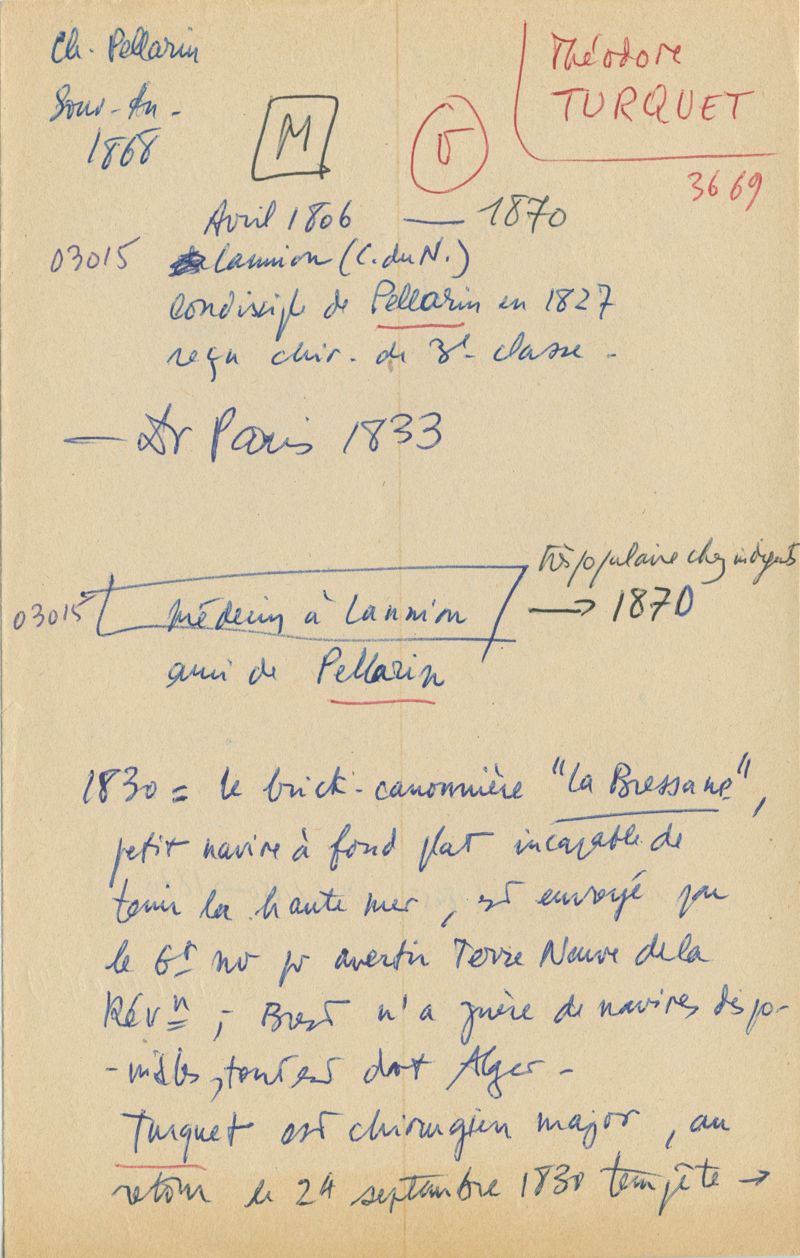 Ch. Pellarin
Souv. An.
1868
M
V
Théodore
TURQUET
3669
Avril 1806 — 1870
03015 Lannion (C. du N.)
condisciple de Pellarin en 1827
reçu chir. de 3e classe -
— Dr Paris 1833
très populaire chez indigents
03015 médecin à Lannion → 1870
ami de Pellarin
1830 = le brick-canonnière "La Bressane",
petit navire à fond plat incapable de
tenir la haute mer, est envoyé par
le Gt nv pr avertir Terre Neuve de la
Révn ; Brest n'a guère de navires dispo-
-nibles, tout est dvt Alger -
Turquet est chirurgien major, au
retour le 24 septembre 1830 tempête →